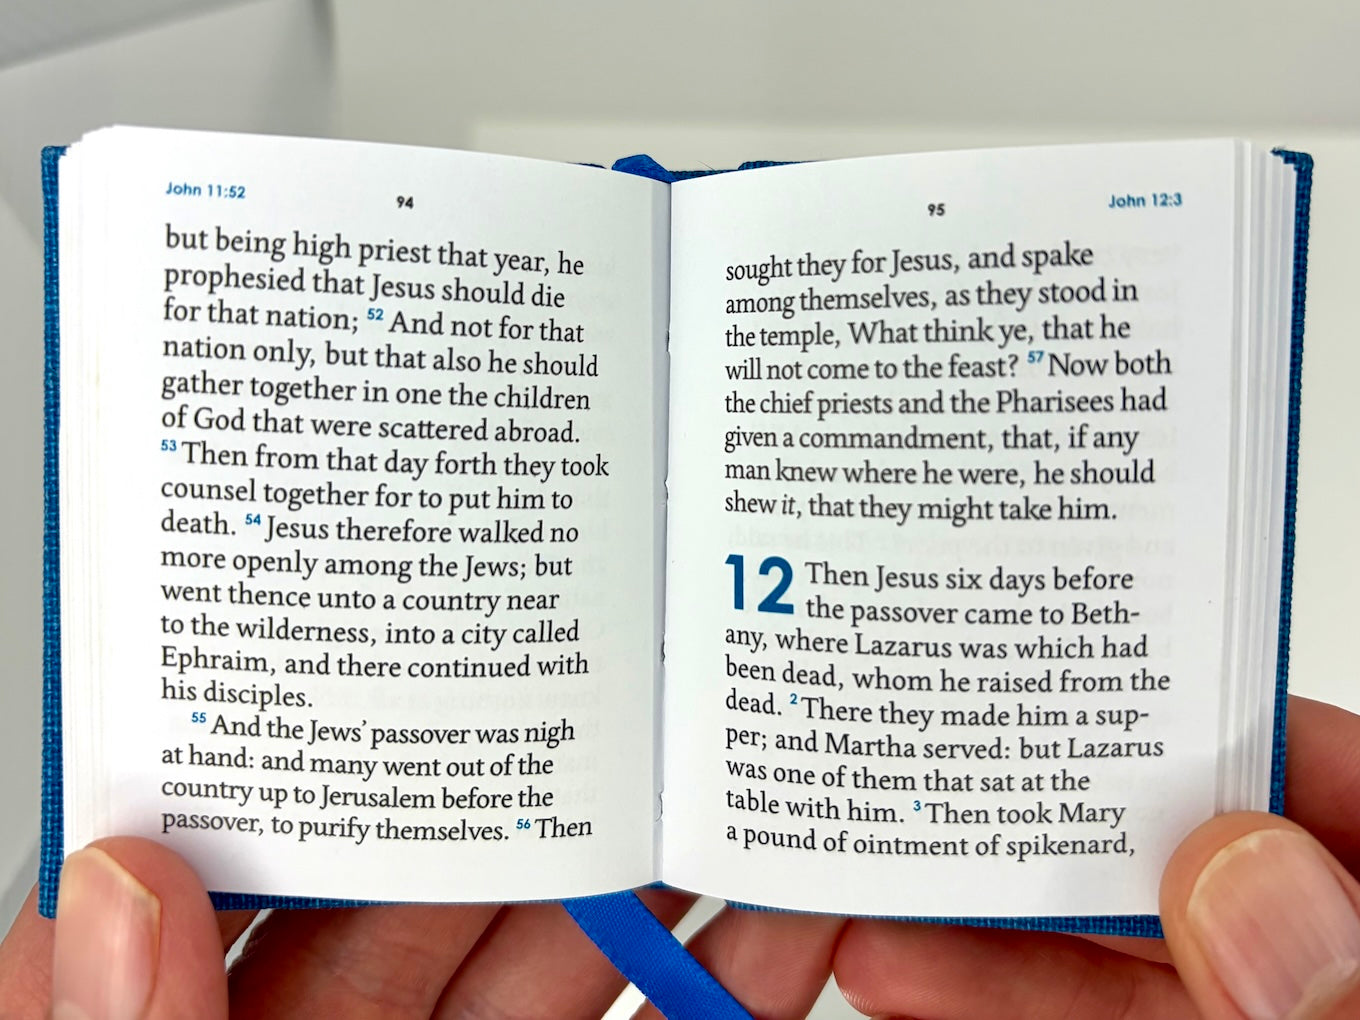 John 11:52
94
but being high priest that year, he
prophesied that Jesus should die
for that nation; 52 And not for that
nation only, but that also he should
gather together in one the children
of God that were scattered abroad.
53 Then from that day forth they took
counsel together for to put him to
death. 54 Jesus therefore walked no
more openly among the Jews; but
went thence unto a country near
to the wilderness, into a city called
Ephraim, and there continued with
his disciples.
55 And the Jews’ passover was nigh
at hand: and many went out of the
country up to Jerusalem before the
passover, to purify themselves. 56 Then
95
John 12:3
sought they for Jesus, and spake
among themselves, as they stood in
the temple, What think ye, that he
will not come to the feast? 57 Now both
the chief priests and the Pharisees had
given a commandment, that, if any
man knew where he were, he should
shew it, that they might take him.
12 Then Jesus six days before
the passover came to Beth-
any, where Lazarus was which had
been dead, whom he raised from the
dead. 2 There they made him a sup-
per; and Martha served: but Lazarus
was one of them that sat at the
table with him. 3 Then took Mary
a pound of ointment of spikenard,